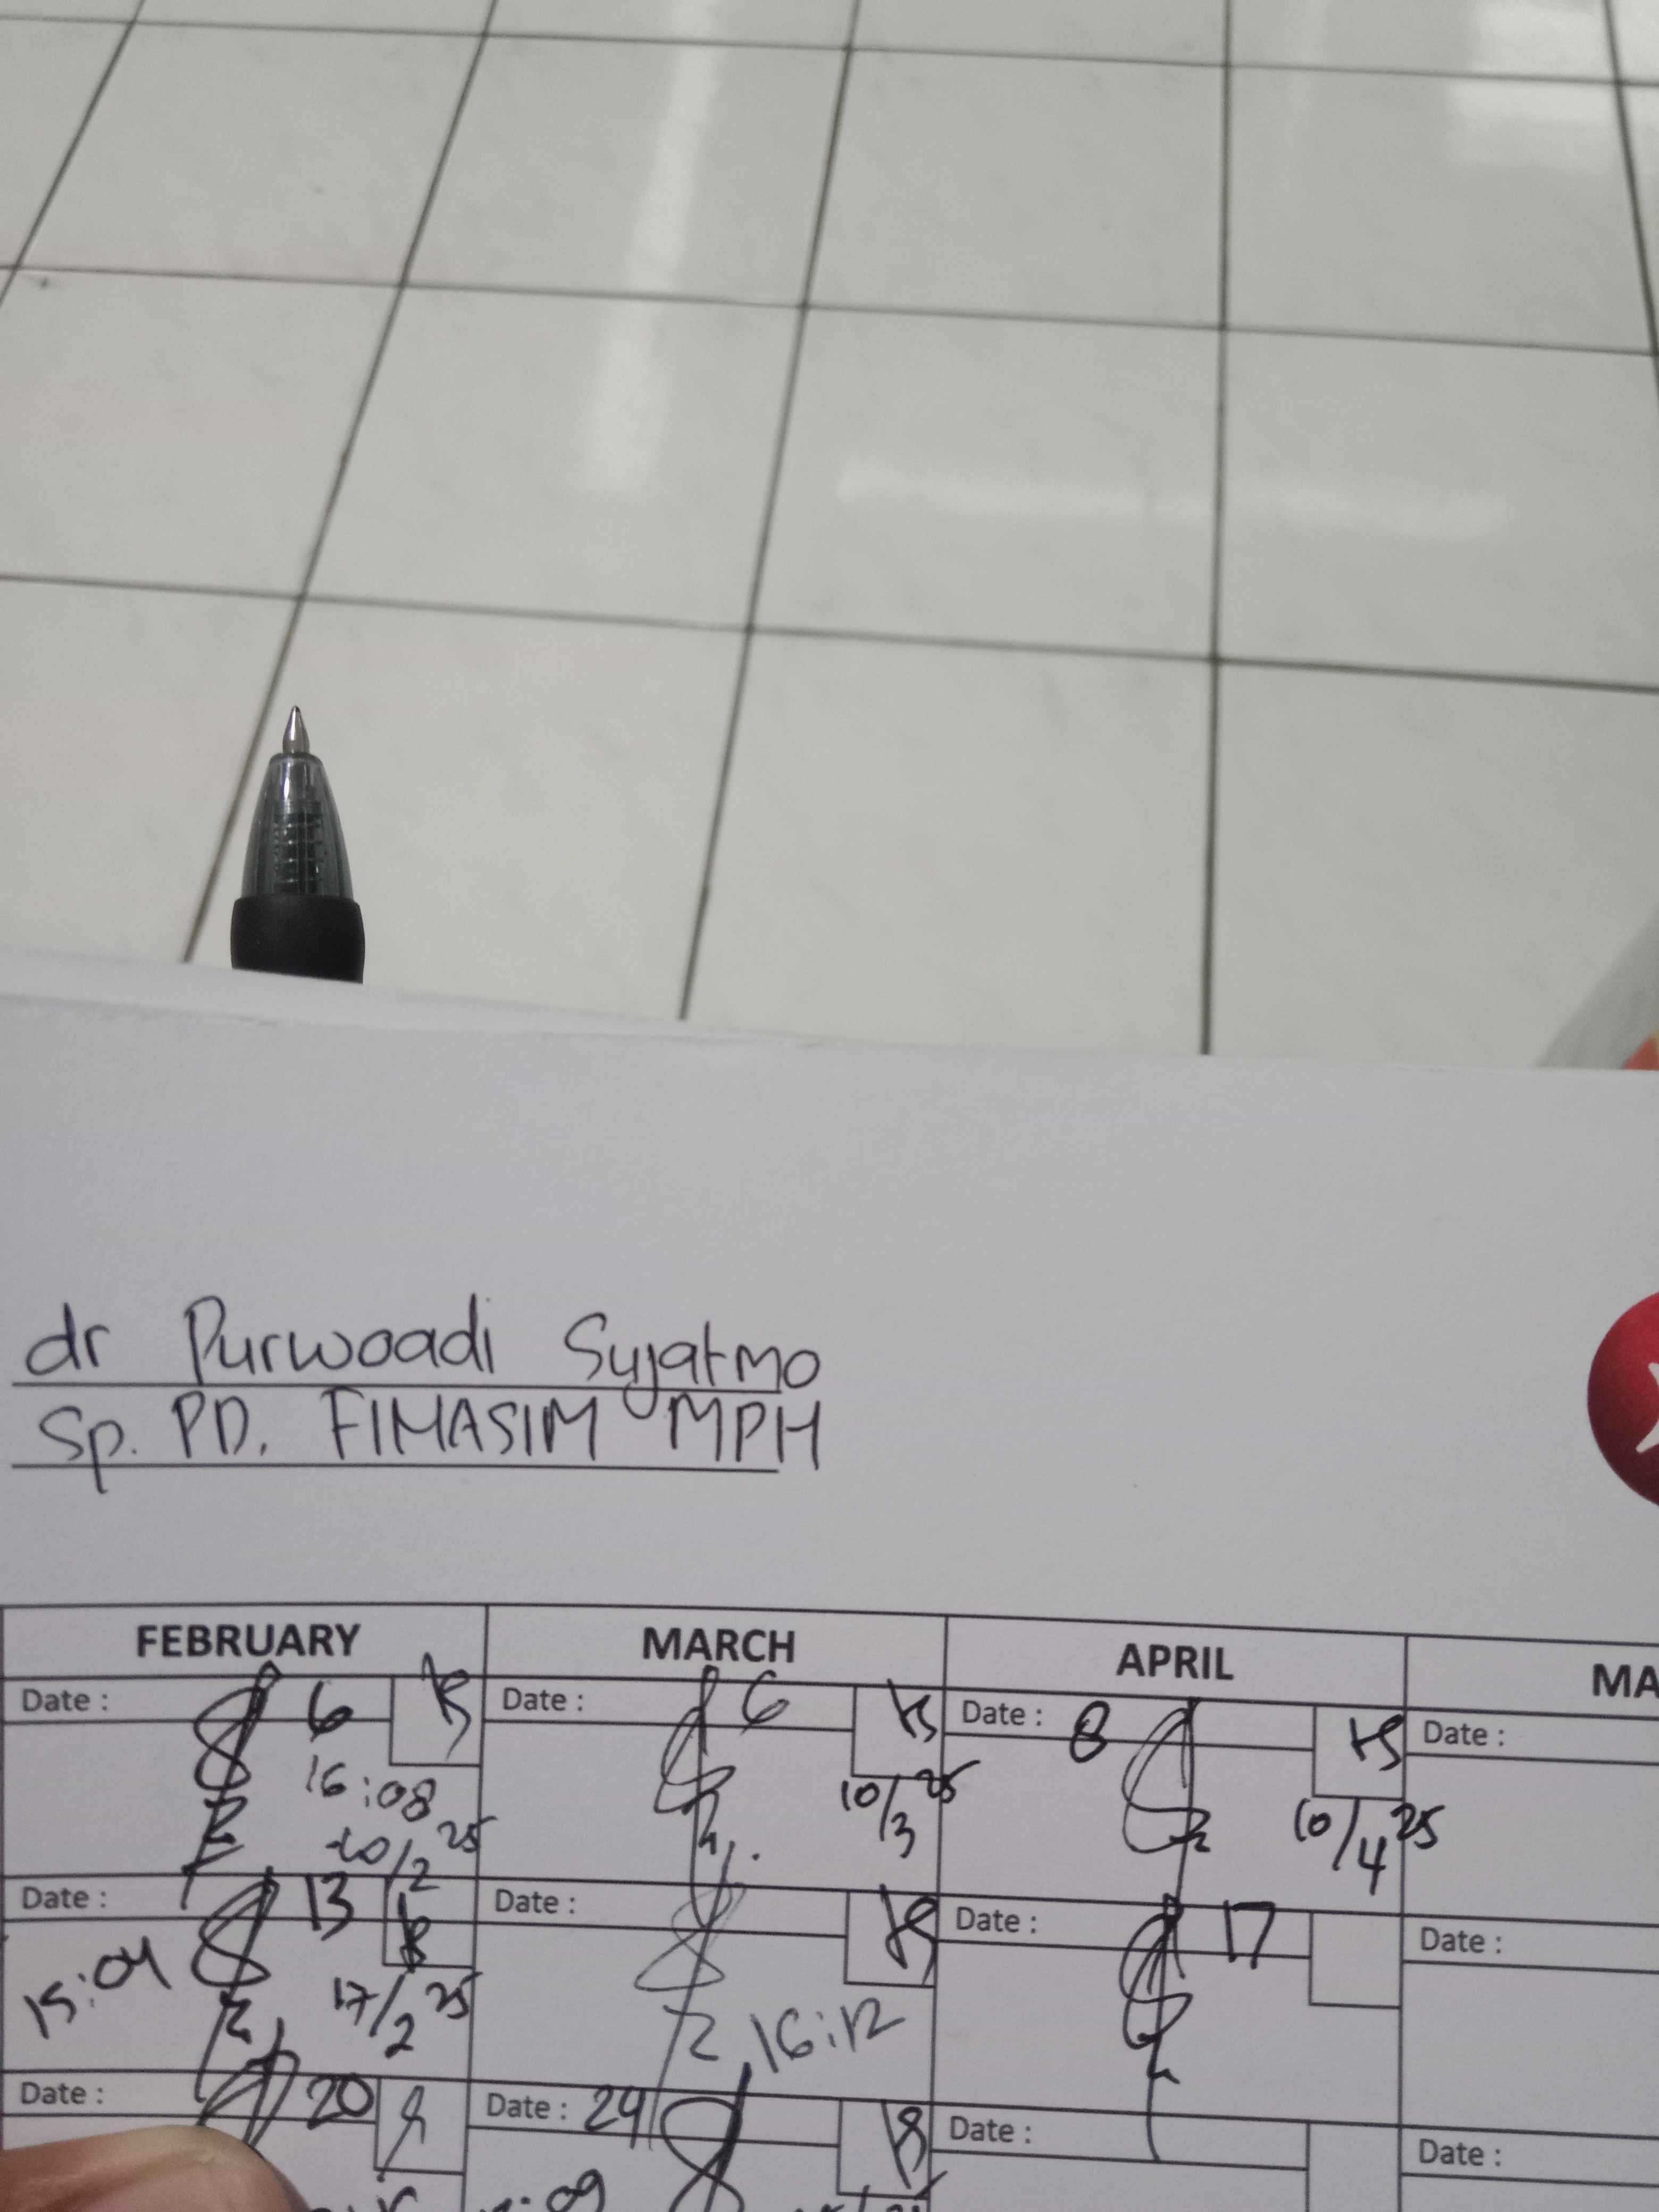 dr Purwoadi Sujatmo
Sp. PD. FIMASIM MPH
FEBRUARY MARCH APRIL MA
Date : 6 Date : 6 Date : 8 Date :
16:08
10/2 25 10/3 25 10/4 25
Date : 13 Date : Date : 17 Date :
15:04
17/2 25 16:12
Date : 20 Date : 24 Date : Date :
:09